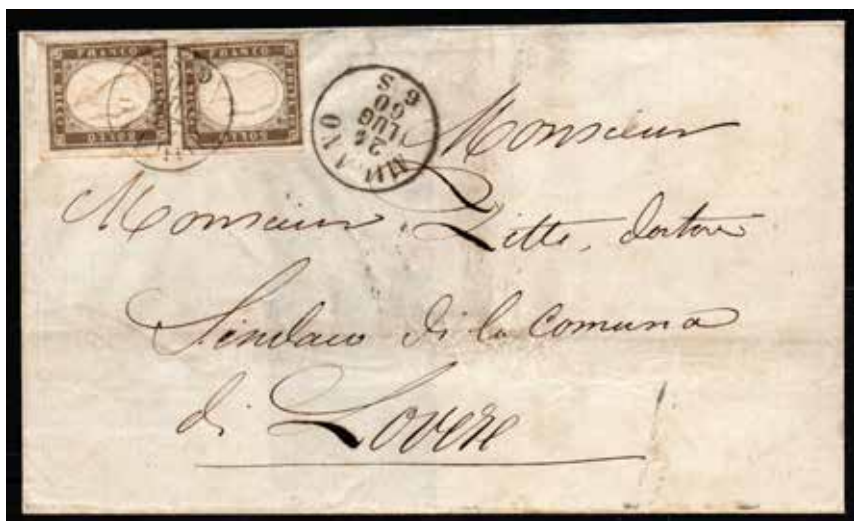 FRANCO FRANCO
BOLLO BOLLO
MILANO
24
LUG
60
6 S
Monsieur
Monsieur Zitti, dottore
Sindaco di la Comuna
di Lovere